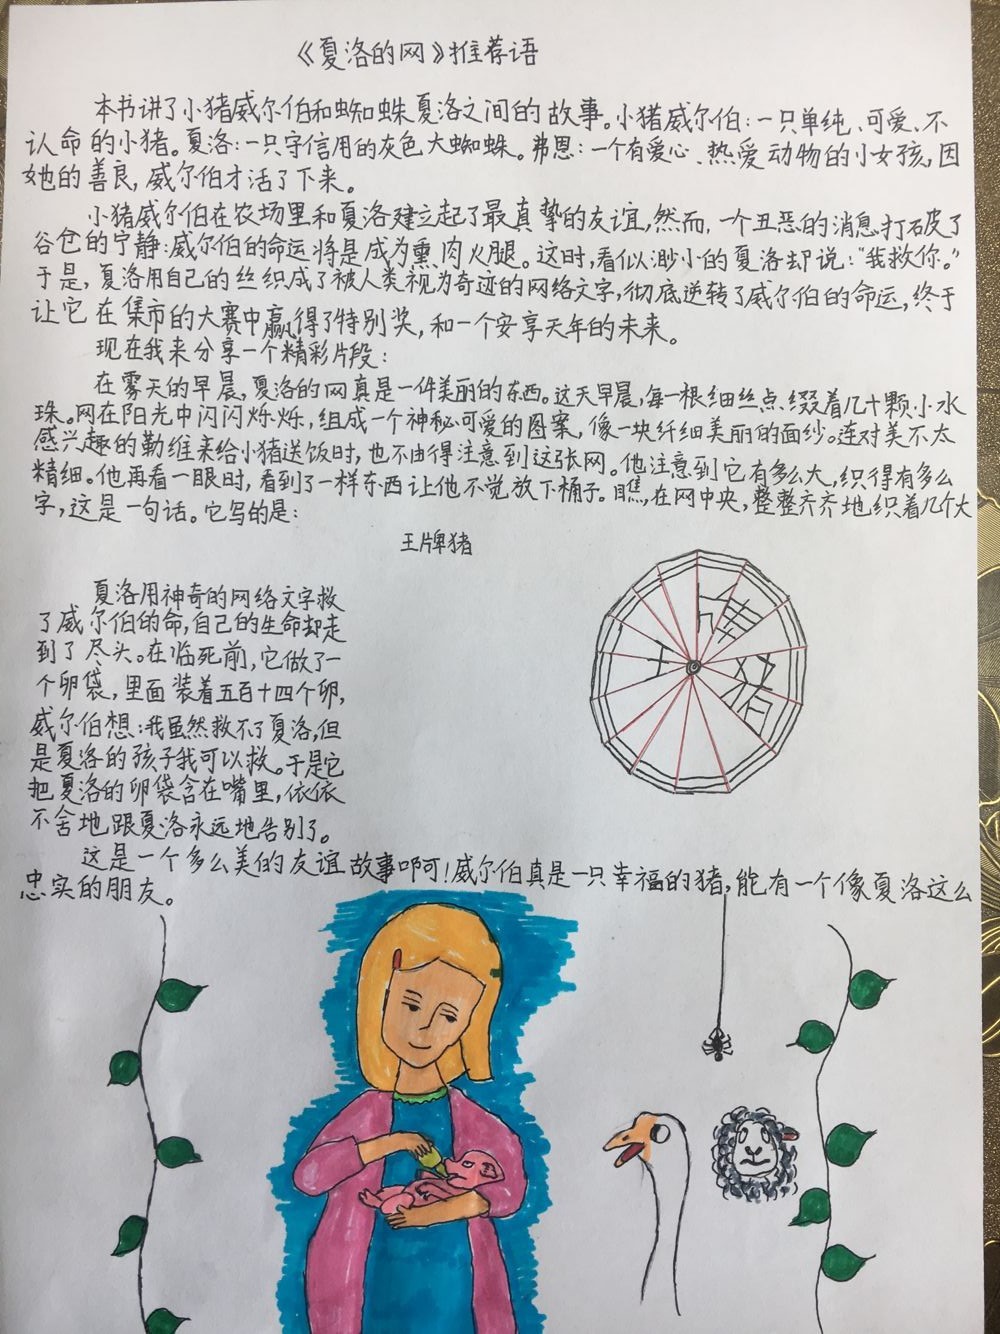 《夏洛的网》推荐语
本书讲了小猪威尔伯和蜘蛛夏洛之间的故事。小猪威尔伯:一只单纯、可爱、不
认命的小猪。夏洛:一只守信用的灰色大蜘蛛。弗恩:一个有爱心、热爱动物的小女孩,因
她的善良,威尔伯才活了下来。
小猪威尔伯在农场里和夏洛建立起了最真挚的友谊,然而,一个丑恶的消息打破了
谷仓的宁静:威尔伯的命运将是成为熏肉火腿。这时,看似渺小的夏洛却说:“我救你。”
于是,夏洛用自己的丝织成了被人类视为奇迹的网络文字,彻底逆转了威尔伯的命运,终于
让它在集市的大赛中赢得了特别奖,和一个安享天年的未来。
现在我来分享一个精彩片段:
在雾天的早晨,夏洛的网真是一件美丽的东西。这天早晨,每一根细丝点缀着几十颗小水
珠。网在阳光中闪闪烁烁,组成一个神秘可爱的图案,像一块纤细美丽的面纱。连对美不太
感兴趣的勒维来给小猪送饭时,也不由得注意到这张网。他注意到它有多么大,织得有多么
精细。他再看一眼时,看到了一样东西让他不觉放下桶子。瞧,在网中央,整整齐齐地织着几个大
字,这是一句话。它写的是:
王牌猪
夏洛用神奇的网络文字救
了威尔伯的命,自己的生命却走
到了尽头。在临死前,它做了一
个卵袋,里面装着五百十四个卵,
威尔伯想:我虽然救不了夏洛,但
是夏洛的孩子我可以救。于是它
把夏洛的卵袋含在嘴里,依依
不舍地跟夏洛永远地告别了。
这是一个多么美的友谊故事啊!威尔伯真是一只幸福的猪,能有一个像夏洛这么
忠实的朋友。